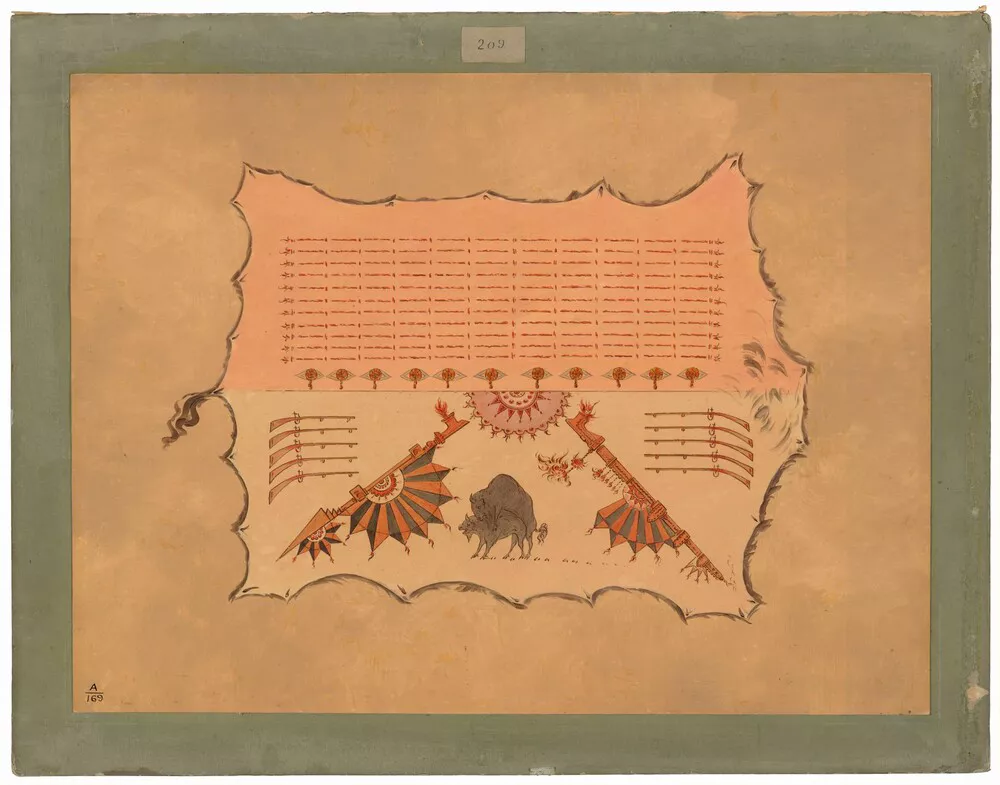 209
A
169